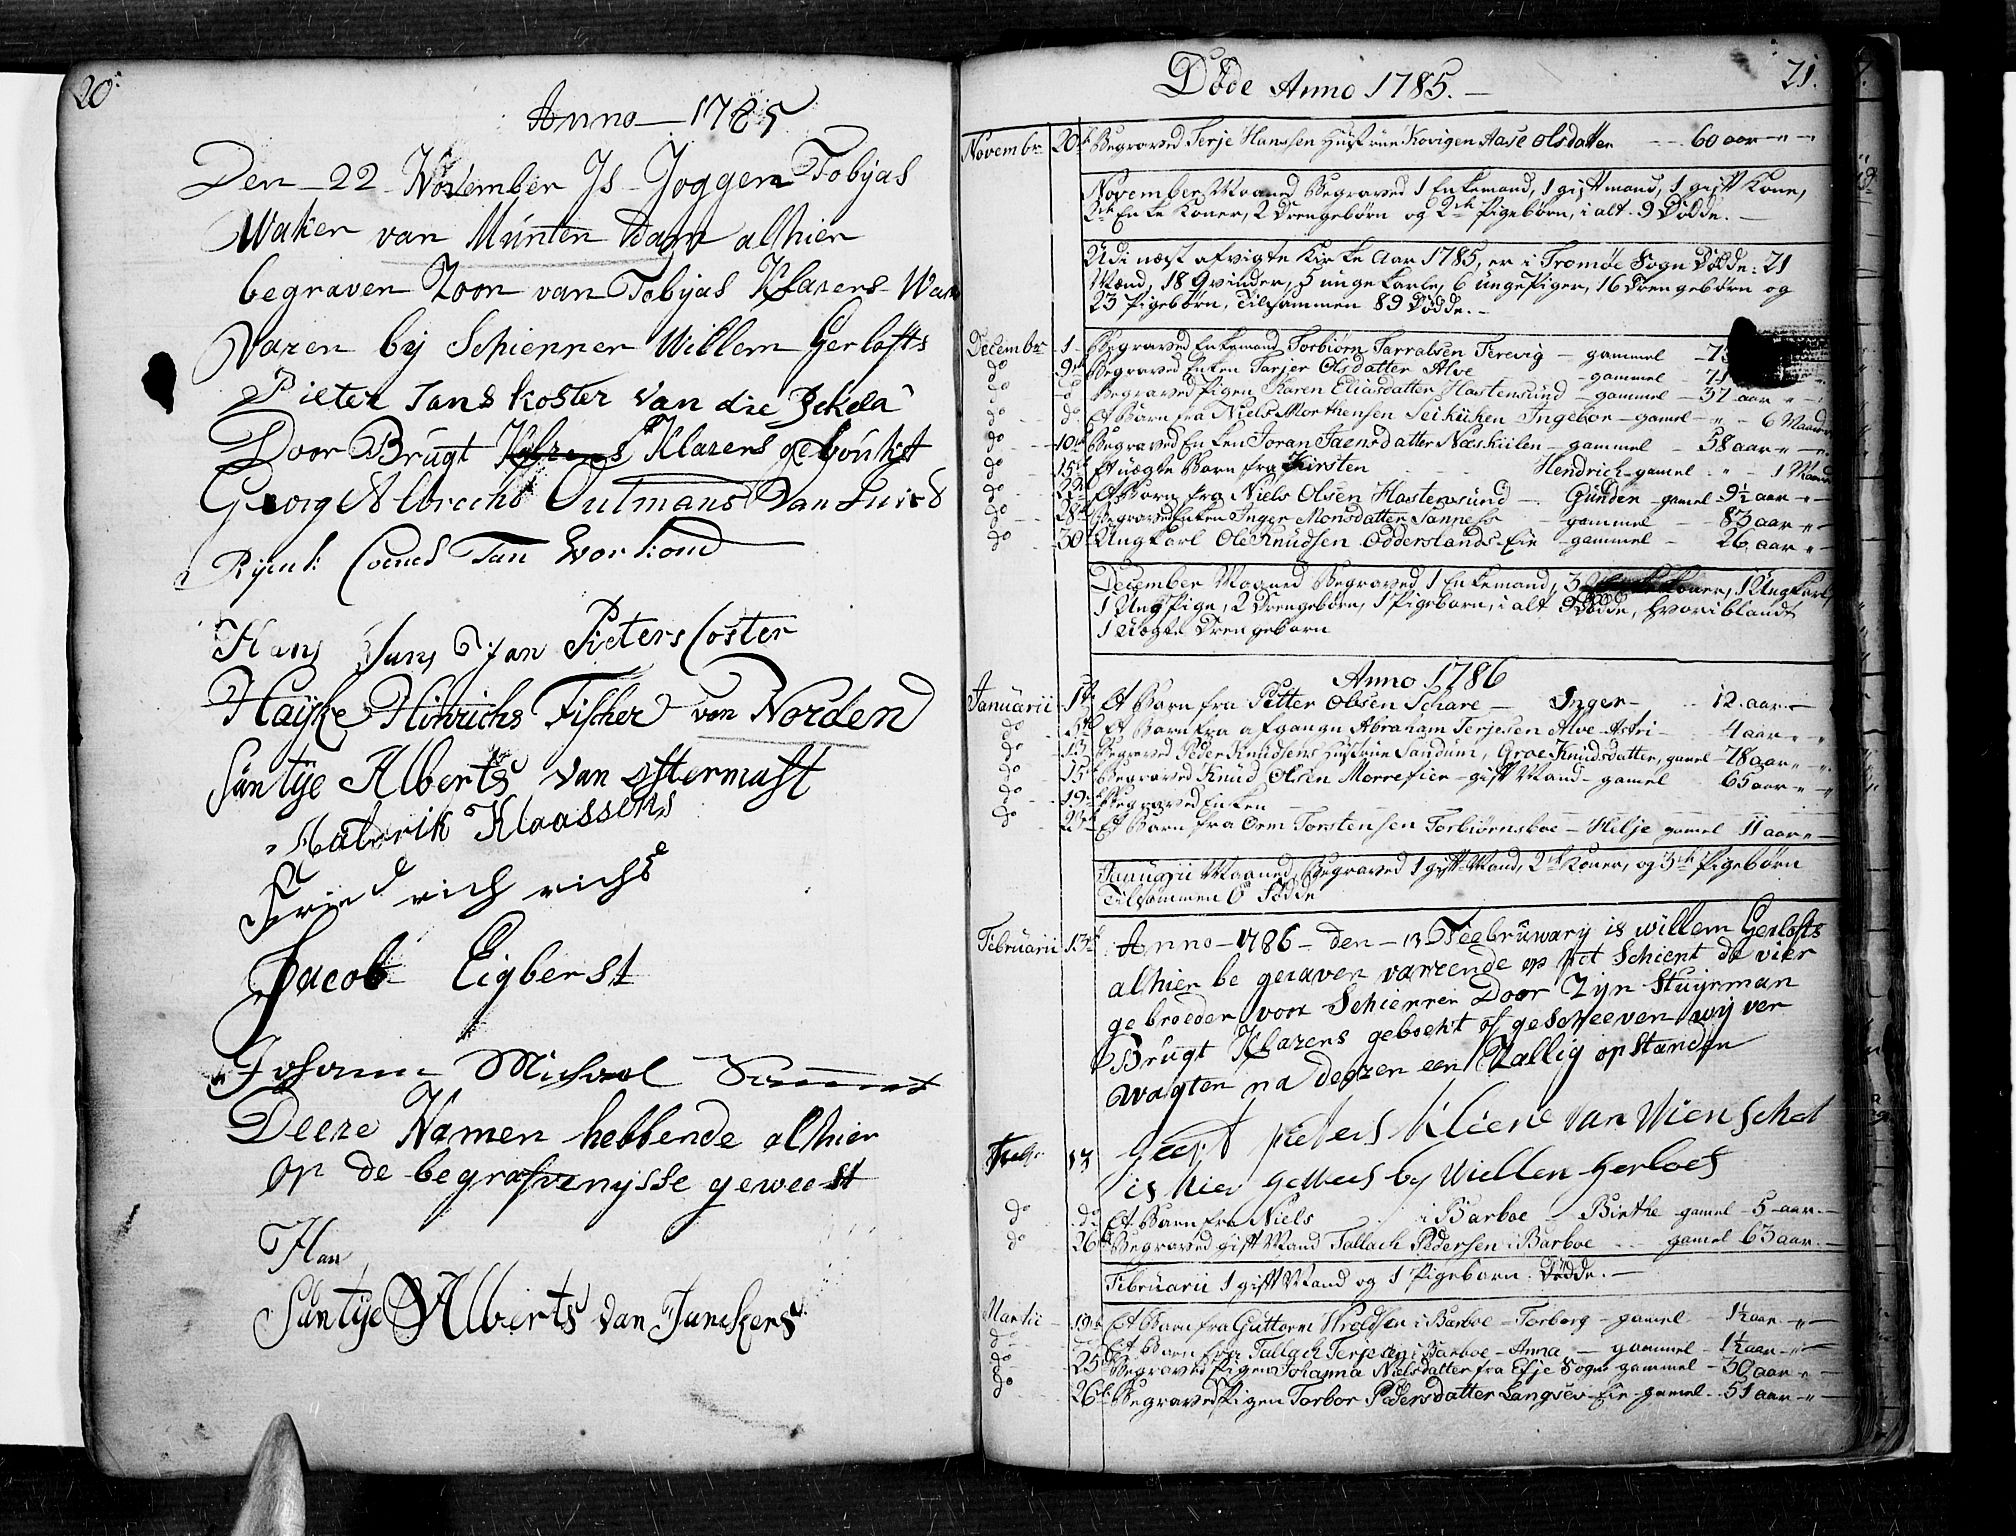 20.
Anno 1785
Den 22 November Is Joggem Tobyas
Waker van Munten dam alhier
begraven Zoon van Tobyas Klazens Wak
Varen by Schipper Willem Gerlofts
Pieter Jans koster van die Pekela
Door Brugt Klazens Klazens geboukt
Georg Albrechs Outmans van
Ryent Coenes Van
Hans Jans Jan Pieters Coster
Hayke Hinrichs Fischer von Norden
Suntye Alberts van ostermast
Klaassens
Friedrich richs
Jacob Eigberst
Johann Michael
Deeze Namen hebbende alhier
op de begrafvenysse geweest
Han
Suntye Alberts van Junckers
21.
Døde Anno 1785.
Novembr 20de Begraved Terje Hanssen Hustrue Kovigen Aase Olsdatter 60 aar
November Maaned Begraved 1 Enkemand, 1 gift mand, 1 gift Kone,
2de Enke Koner, 2 Drengebørn og 2de Pigebørn, i alt 9 Dødde.
Udi næst afvigte Kirke Aar 1785, er i Tromøe Sogn Dødde: 21
Mænd, 18 Qvinder, 5 unge Karle, 6 unge Piger, 16 Drengebørn og
23 Pigebørn, Tilsammen 89 Dødde.
Decembr 1 Begraved Enkemand Torbiørn Tarralsen Terevig gammel
do 9de Begraved Enken Tarjer Olsdatter Alve gammel 71
do do Begraved Pigen Karen Eliasdatter Hastensund gammel 37 aar
do do Et Barn fra Niels Morthensen Ingebor gamel 6 Maander
do 10de Begraved Enken Joran Jaensdatter Næskiilen gammel 58 aar
do 15de Et uægte Barn fra Kirsten Hendrich gamel 1 Maan
do 22de Et Barn fra Niels Olsen Hastensund Gunder gamel 9½ aar
do 28de Begraved Enken Inger Monsdatter gammel 83 aar
do 30te Ungkarl Ole Knudsen Odderslands Eie gammel 26 aar
December Maaned Begraved 1 Enkemand, 3 Enke koner, 1 Ungkarl,
1 Ung Pige, 2 Drengebørn, 1 Pigebarn, i alt 9 Dødde, hvoriblandt
1 Uægte Drengebarn
Anno 1786
Januarii 1te Et Barn fra Petter Olsen Schare Inger 12 aar
do 5te Et Barn fra afgangn Abraham Terjesen Alve Astri 4 aar
do 13 Begraved Peder Knudsens Hustrue Sandum, Groe Knudsdatter, gamel 78 aar
do 15de Begraved Knud Olsen Morrefier gift Mand gamel 65 aar
do 19de Begraved Enken
do 22de Et Barn fra Orm Torstensen Torbiørnsboe Helje gamel 11 aar
Januarii Maaned, Begraved 1 gift Mand, 2de Koner, og 3de Pigebørn
Tilsammen 6 Dødde
Februarii 13de Anno 1786 den 13 Feebruwary is willem Gerlofts
alhier be geraven varrende op het Schiept de vier
gebroeder voor Schipper Door Zyn Stuyrman
Brugt Klazens geboekt of geschreeven wy ver
wagten na deezen een Zallig opstanden
13 Geert pieters Kliene van
is hier by Willem Gerloes
do do Et Barn fra Niels i Barboe Birthe gamel 5 aar
do 26de Begraved gift Mand Tallach Pedersen i Barboe gamel 63 aar
Februarii 1 gift Mand og 1 Pigebarn Dødde.
Martii 19de Et Barn fra Guttorm i Barboe Torborg gamel 1½ aar
do Et Barn fra Tallach Terjesen i Barboe Anna gammel 1½ aar
do 25 Begraved Pigen Johanna Nielsdatter fra Sogn gammel 30 aar
do 26de Begraved Pigen Torbor Pedersdatter Langsev Eie gamel 51 aar